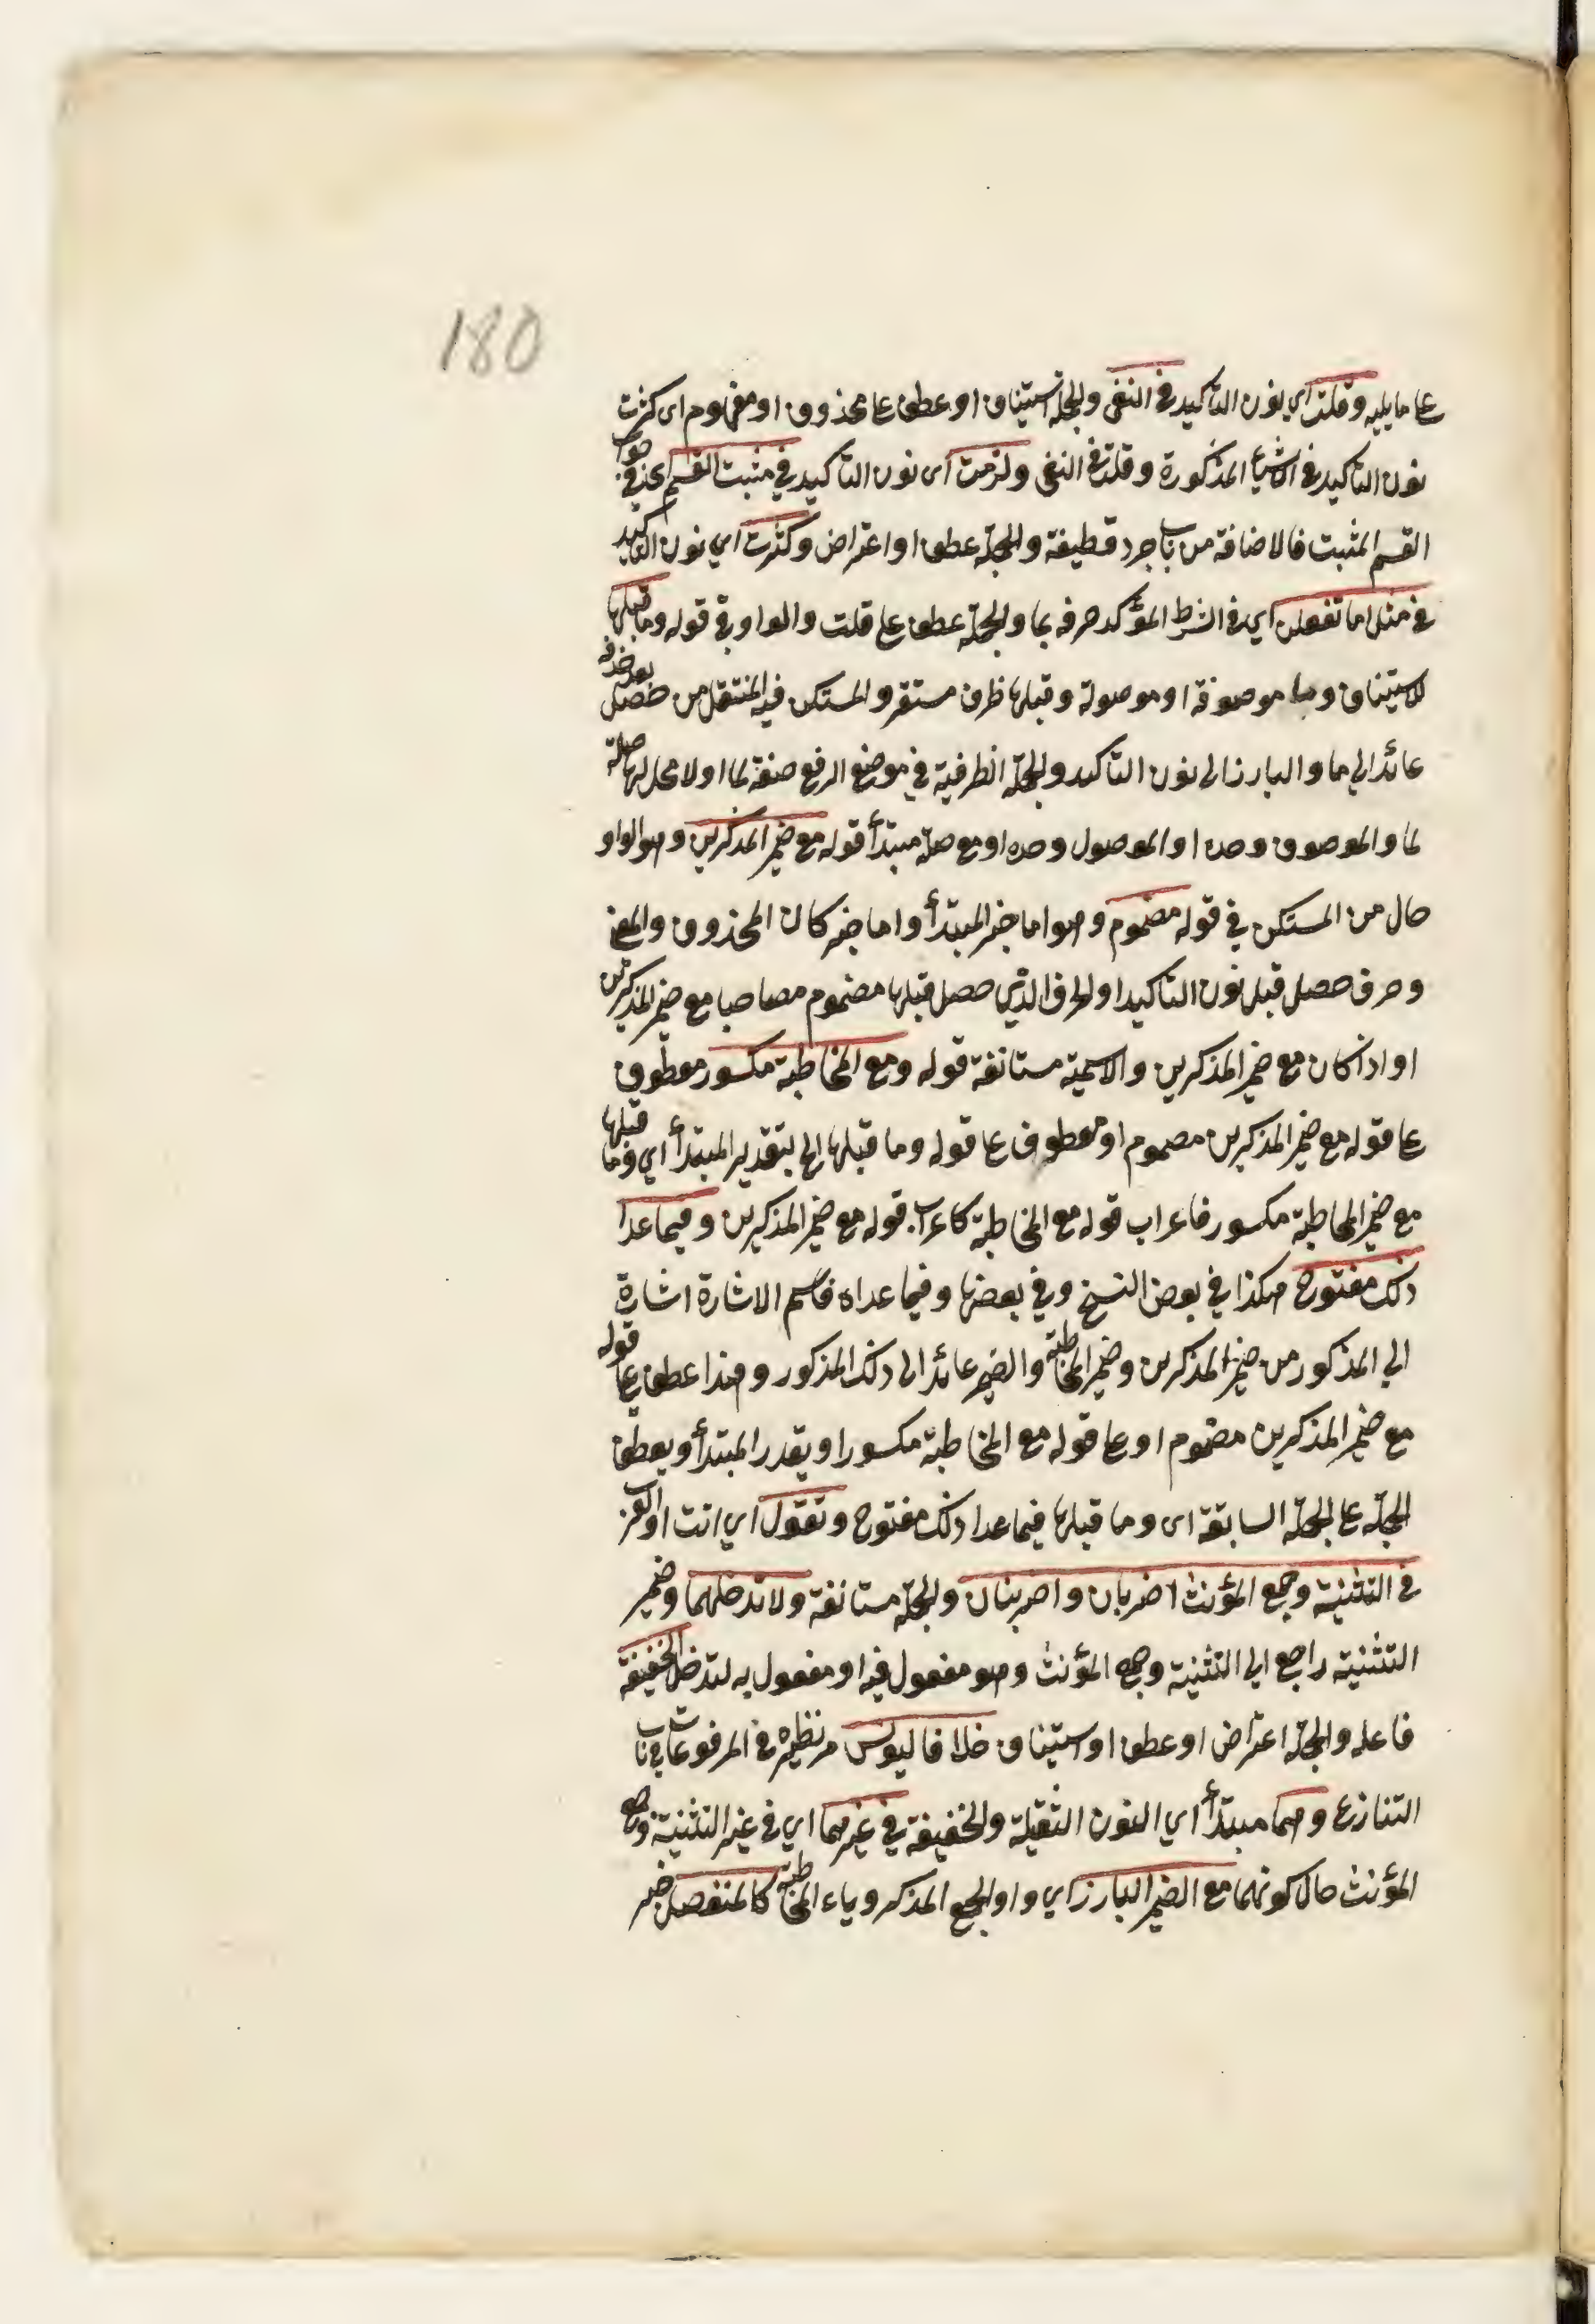 180
على ما يليه وقلت اي نون التأكيد في النفي والجملة استيناف او عطف على محذوف او مفهوم اى كثرت
نون التأكيد في الاشياء المذكورة وقلت في النفي ولزمت اى نون التأكيد في مثبت القسم اى في جواب
القسم المثبت فالاضافة من باب جرد قطيفة والجملة عطف او اعتراض وكثرت اي نون التأكيد
في مثل اما تفعلن اي في الشرط المؤكد حرفه بما والجملة عطف على قلت والواو في قوله وما قبلها
للاستيناف وما موصوفة او موصولة وقبلها ظرف مستقر والمستكن فيه المنتقل من حصل بعد حذفه
عائد الى ما والبارز الى نون التأكيد والجملة الظرفية في موضع الرفع صفة لما او لا محل لها صلة
لما والموصوف وحده او الموصول وحده او مع صلته مبتدأ قوله مع ضمير المذكرين وهو الواو
حال من المستكن في قوله مضموم وهو اما خبر المبتدأ واما خبر كان المحذوف والمعنى
وحرف حصل قبل نون التأكيد او الحرف الذي حصل قبلها مضموم مصاحبا مع ضمير المذكرين
او اذا كان مع ضمير المذكرين والاسمية مستانفة قوله ومع المخاطبة مكسور معطوف
على قوله مع ضمير المذكرين مضموم او معطوف على قوله وما قبلها الخ بتقدير المبتدأ اي وما قبلها
مع ضمير المخاطبة مكسور فاعراب قوله مع المخاطبة كاعراب قوله مع ضمير المذكرين وفيما عدا
ذلك مفتوح هكذا في بعض النسخ وفي بعضها وفيما عداه فاسم الاشارة اشارة
الى المذكور من ضمير المذكرين وضمير المخاطبة والضمير عائد الى ذلك المذكور وهذا عطف على قوله
مع ضمير المذكرين مضموم او على قوله مع المخاطبة مكسور او يقدر المبتدأ ويعطف
الجملة على الجملة السابقة اى وما قبلها فيما عدا ذلك مفتوح وتقول اي انت او العرب
في التثنية وجمع المؤنث اضربان واضربنان والجملة مستانفة ولا تدخلهما وضمير
التثنية راجع الى التثنية وجمع المؤنث وهو مفعول فيه او مفعول به لتدخل الخفيفة
فاعله والجملة اعتراض او عطف او استيناف خلافا ليونس مر نظيره في المرفوعات في باب
التنازع وهما مبتدأ اي النون الثقيلة والخفيفة في غيرهما اي في غير التثنية وجمع
المؤنث حال كونهما مع الضمير البارز اي واو الجمع المذكر وياء المخاطبة كالمنفصل خبر